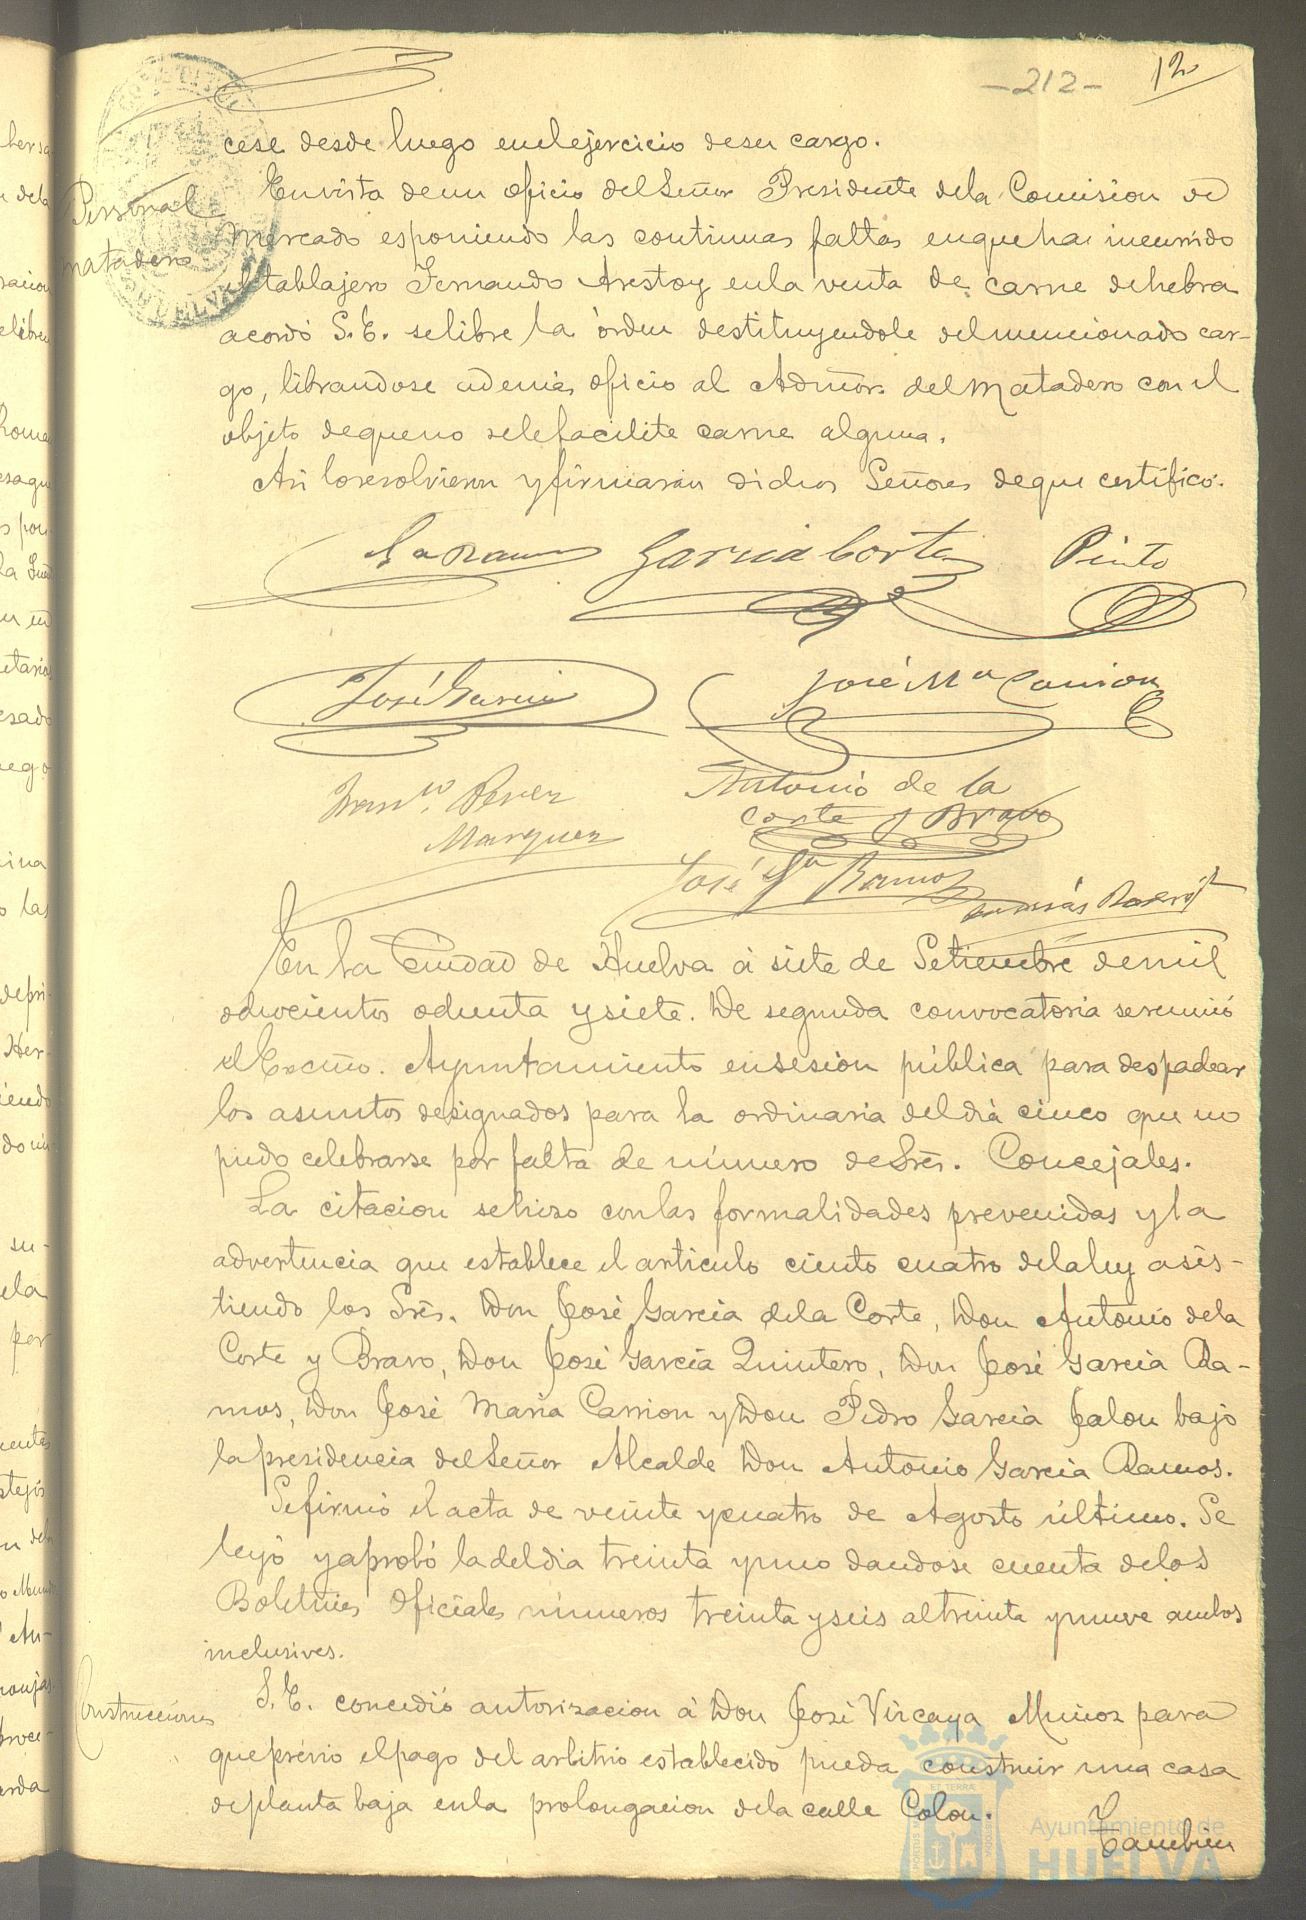 -212- 12
cese desde luego en el ejercicio de su cargo.
Personal
matadero
En vista de un oficio del Señor Presidente de la Comision de
Mercado esponiendo las continuas faltas en que ha incurrido
el tablajero Fernando Arestoy en la venta de carne de hebra
acordó S.E. se libre la órden destituyendole del mencionado car-
go, librandose ademas oficio al Admor. del Matadero con el
objeto de que no se le facilite carne alguna.
Asi lo resolvieron y firmaran dichos Señores de que certifico.
Ga Ramos Garcia Corte Pinto
José Garcia José Ma Carrion
Franco. Perez
Marquez
Antonio de la
Corte y Bravo
José Ga Ramos
En la Ciudad de Huelva á siete de Setiembre de mil
ochocientos ochenta y siete. De segunda convocatoria se reunió
el Excmo. Ayuntamiento en sesion pública para despachar
los asuntos designados para la ordinaria del dia cinco que no
pudo celebrarse por falta de número de Sres. Concejales.
La citacion se hizo con las formalidades prevenidas y la
advertencia que establece el articulo ciento cuatro de la ley asis-
tiendo los Sres. Don José Garcia de la Corte, Don Antonio de la
Corte y Bravo, Don José Garcia Quintero, Don José Garcia Ra-
mos, Don José Maria Carrion y Don Pedro Garcia Jalon bajo
la presidencia del Señor Alcalde Don Antonio Garcia Ramos.
Se firmó el acta de veinte y cuatro de Agosto último. Se
leyó y aprobó la del dia treinta y uno dandose cuenta de los
Boletines Oficiales números treinta y seis al treinta y nueve ambos
inclusives.
Construcciones
S.E. concedió autorizacion á Don José Vizcaya Muñoz para
que prévio el pago del arbitrio establecido pueda construir una casa
de planta baja en la prolongacion de la calle Colon.
Tambien
Ayuntamiento de
HUELVA